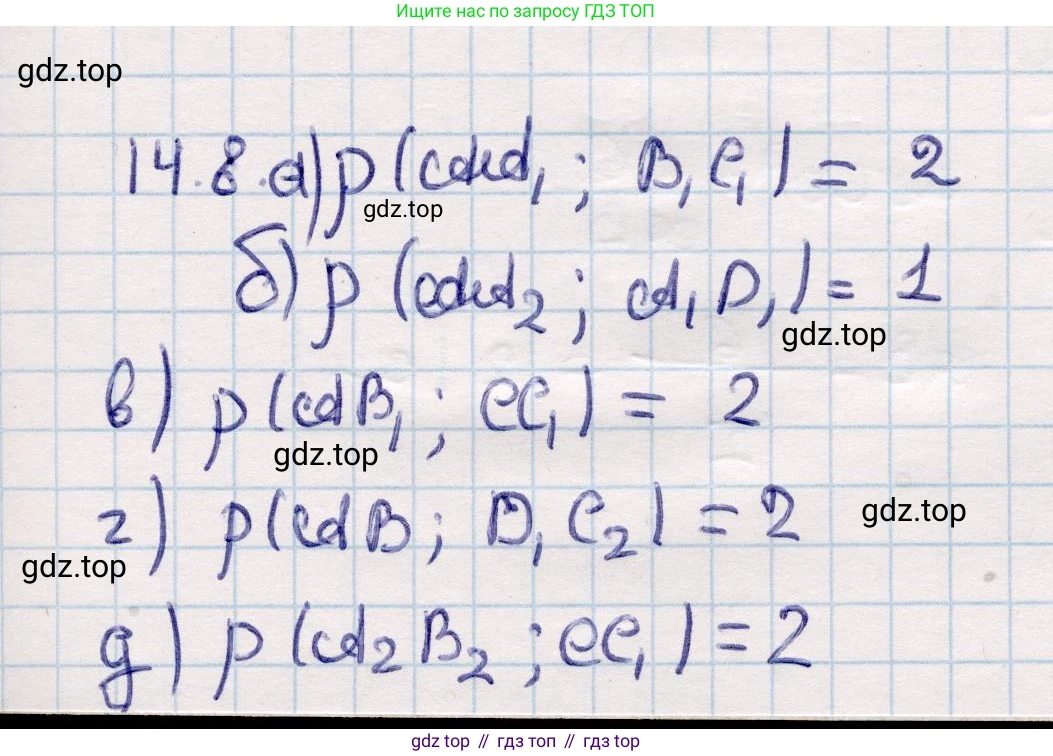 Ищите нас по запросу ГДЗ ТОП
gdz.top
14.8.а) p(AA₁; B₁C₁) = 2
gdz.top
б) p(AA₂; A₁D₁) = 1
gdz.top
в) p(AB₁; CC₁) = 2
gdz.top
г) p(AB; D₁C₂) = 2
gdz.top
gdz.top
д) p(A₂B₂; CC₁) = 2
gdz top // гдз топ // gdz top